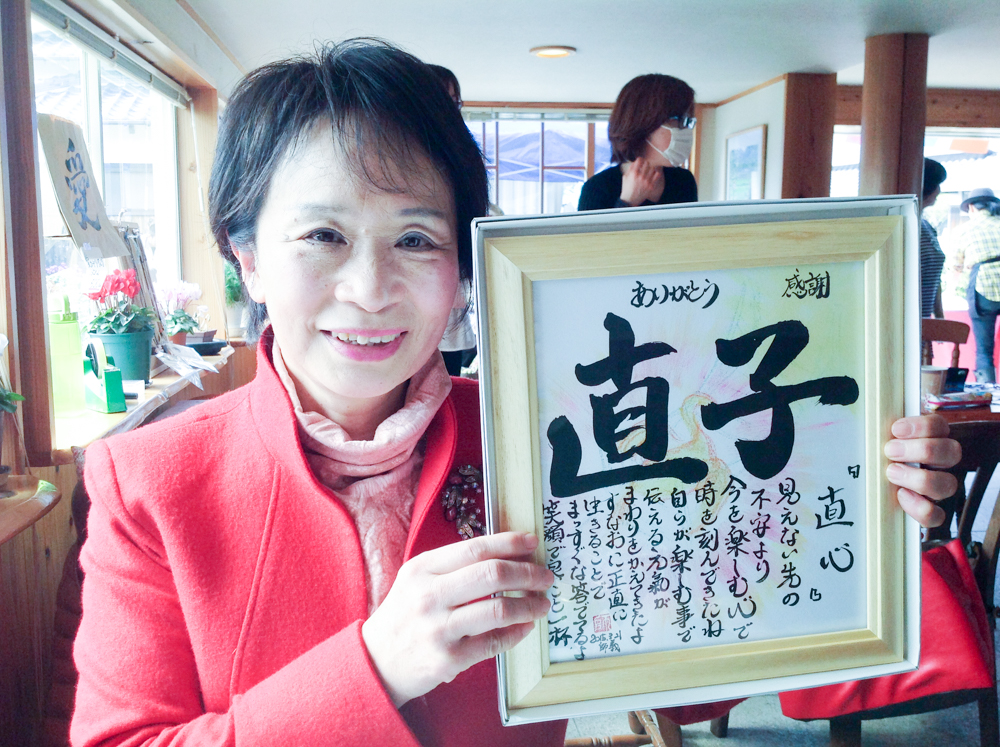 愛
ありがとう
感謝
直子
「直心」
見えない先の
不安より
今を楽しむ心で
時を刻んできたね
自らが楽しむ事で
伝える元氣が
まわりをかえてきたよ
すなおに正直に
生きることで
まっすぐな答でてるよ
笑顔で良いこと一杯